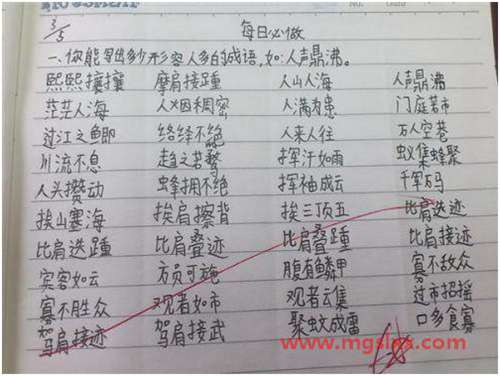 3/5 每日必做
一、你能写出多少形容人多的成语,如:人声鼎沸。
熙熙攘攘 摩肩接踵 人山人海 人声鼎沸
茫茫人海 人烟稠密 人满为患 门庭若市
过江之鲫 络绎不绝 人来人往 万人空巷
川流不息 趋之若鹜 挥汗如雨 蚁集蜂聚
人头攒动 蜂拥不绝 挥袖成云 千军万码
挨山塞海 挨肩擦背 挨三顶五 比肩迭迹
比肩迭踵 比肩叠迹 比肩叠踵 比肩接迹
宾客如云 方员可施 腹有鳞甲 寡不敌众
寡不胜众 观者如市 观者云集 过市招摇
驾肩接迹 驾肩接武 聚蚊成雷 口多食寡
www.mgslns.com